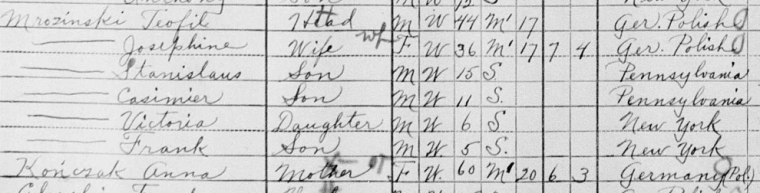 Mrozinski Teofil Head M W 44 M¹ 17 Ger. Polish
Josephine Wife F W 36 M¹ 17 7 4 Ger. Polish
Stanislaus Son M W 15 S. Pennsylvania
Casimier Son M W 11 S. Pennsylvania
Victoria Daughter M W 6 S. New York
Frank Son M W. 5 S. New York
Kończak Anna Mother F W. 60 M¹ 20 6 3 Germany (Pol.)